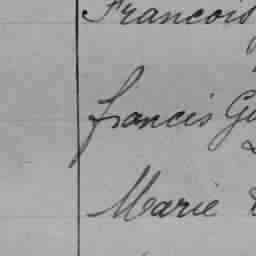 Francois
francis Ge
Marie